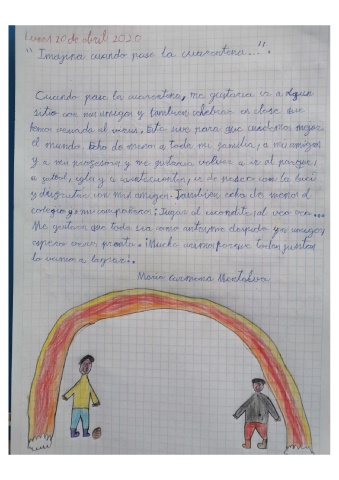 Lunes 20 de abril 2020
"Imagina cuando pase la cuarentena...".
Cuando pase la cuarentena, me gustaria ir a algun
sitio con mis amigos y tambien celebrar en clase que
hemos vencido al virus. Esto sirve para que cuidemos mejor
el mundo. Echo de menos a toda mi familia, a mis amigos
y a mi profesora y me gustaria volver a ir al parque,
a futbol, ingles y a cuentacuentos, ir de paseo con la bici
y disfrutar con mis amigos. Tambien echo de menos el
colegio y a mis compañeros: Jugar al escondite, al veo veo...
Me gustaria que todo sea como antes me despido ya amigos
espero veros pronto. ¡Mucho animo porque todos juntos
lo vamos a lograr!.
Mario Carmona